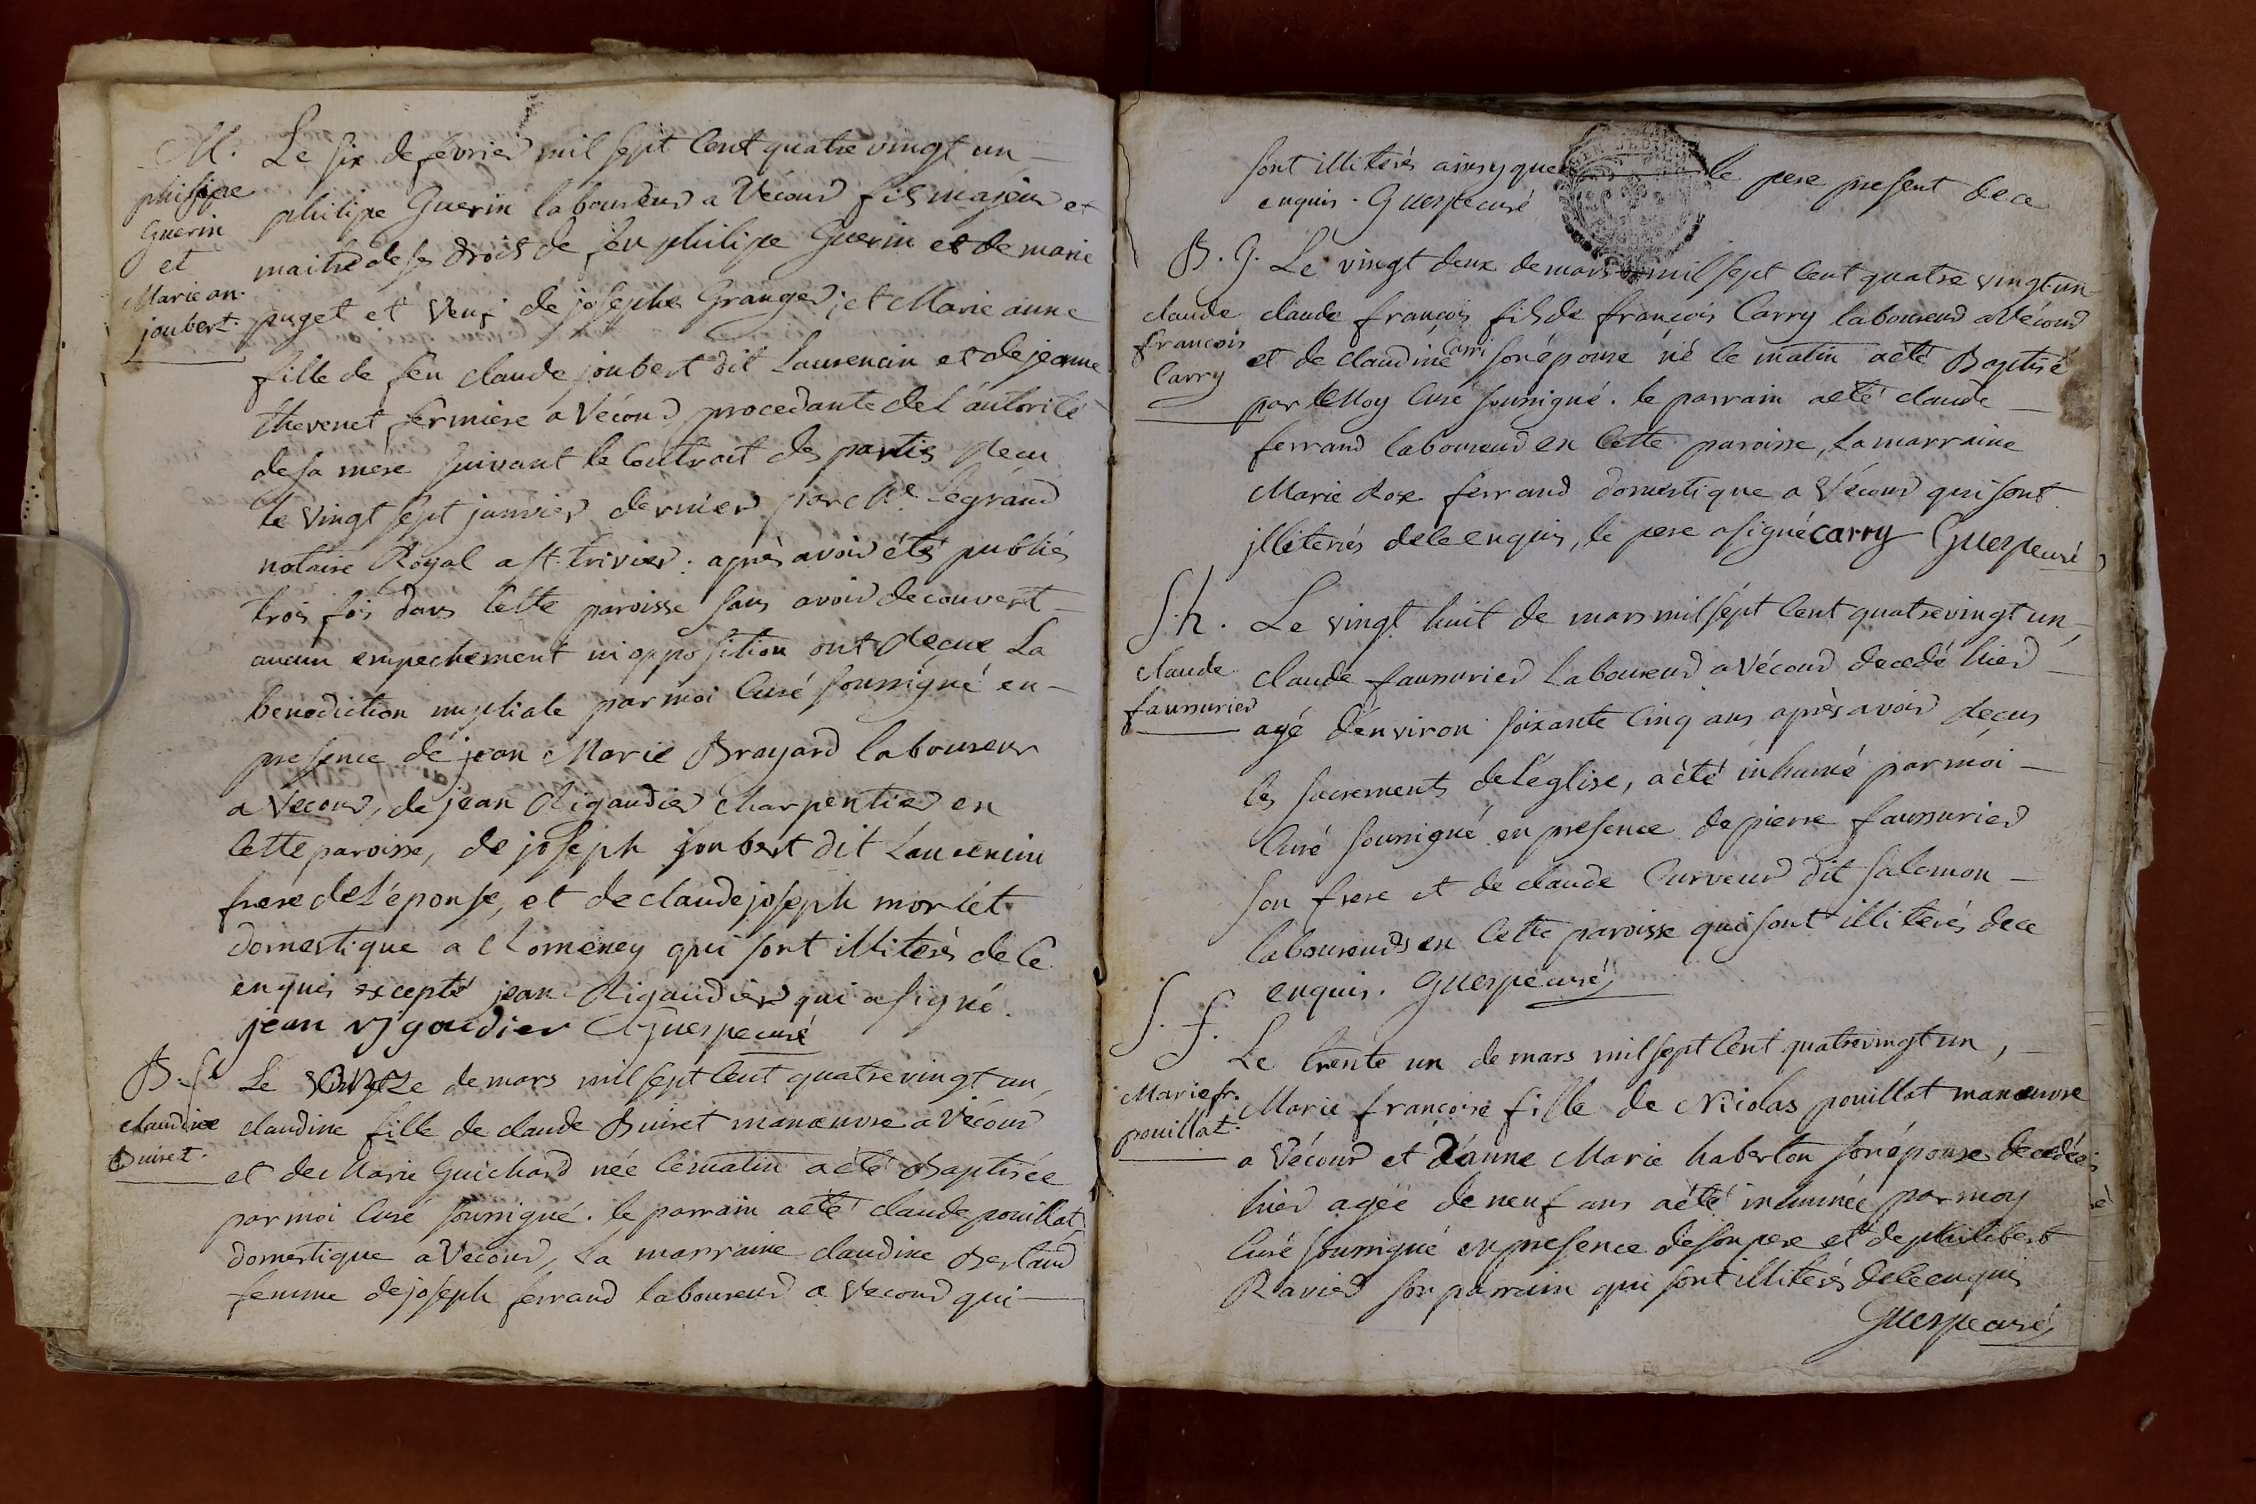 M. Le six de février mil sept Cent quatre vingt un
philipe
Guerin
et
Marie an.
joubert.
philipe Guerin laboureur a Vécour fils majeur et
maitre de ses droits de feu philipe Guerin et de marie
puget et Veuf de josephe Granger; et Marie anne
fille de feu claude joubert dit Laurencin et de jeanne
thevenet fermiere a Vécour procedante de L'autorité
de sa mere suivant le Contrat des parties reçu
le vingt sept janvier dernier par Me Legrand
notaire Royal a St. trivier. après avoir étés publiés
trois fois dans Cette paroisse sans avoir decouvert
aucun empechement ni opposition ont reçue La
benediction nuptiale par moi Curé soussigné en
presence de jean Marie Brayard laboureur
a Vecour, de jean Rigaudier charpentier en
Cette paroisse, de joseph joubert dit Laurencin
frere de L'épouse, et de claude joseph morlet
domestique a Romeney qui sont illiterés de Ce
enquis excepté jean Rigaudier qui a signé.
jean rigaudier Guerpe curé
B. f. Le onze de mars mil sept Cent quatre vingt un
claudine
Buiret.
claudine fille de claude Buiret manœuvre a Vécour
et de Marie Guichard née Cematin a été Baptisée
par moi Curé soussigné. le parrain a été claude pouillat
domestique a Vecour, La marraine claudine Berland
femme de joseph ferrand laboureur a Vecour qui
sont illiterés ainsy que le pere present de ce
enquis. Guerpe curé
B. g. Le vingt deux de mars mil sept Cent quatre vingt un
claude
françois
Carry
claude françois fils de françois Carry laboureur a Vécour
et de claudine Carri son épouse né le matin a été Baptisé
par Moy Curé soussigné. le parrain a été claude
ferrand laboureur en Cette paroisse, La marraine
Marie Rose ferrand domestique a Vécour qui sont
illiterés de Ce enquis, le pere a signé Carry Guerpe curé
S. h. Le vingt huit de mars mil sept Cent quatre vingt un,
claude
faussurier
claude faussurier Laboureur a Vécour decedé hier
agé d'environ soixante Cinq ans après avoir reçus
les sacrements de l'église, a été inhumé par moi
Curé soussigné en presence de pierre faussurier
son frere et de claude Curveur dit salomon
laboureurs en Cette paroisse qui sont illiterés de ce
enquis. Guerpe curé
S. f. Le trente un de mars mil sept Cent quatre vingt un,
Marie fr.
pouillat.
Marie françoise fille de Nicolas pouillat manœuvre
a Vécour et d'anne Marie haberton son épouse decedée
hier agée de neuf ans a été inhumée par moy
Curé soussigné en presence de son pere et de philibert
Ravier son parrain qui sont illiterés de Ce enquis
Guerpe curé